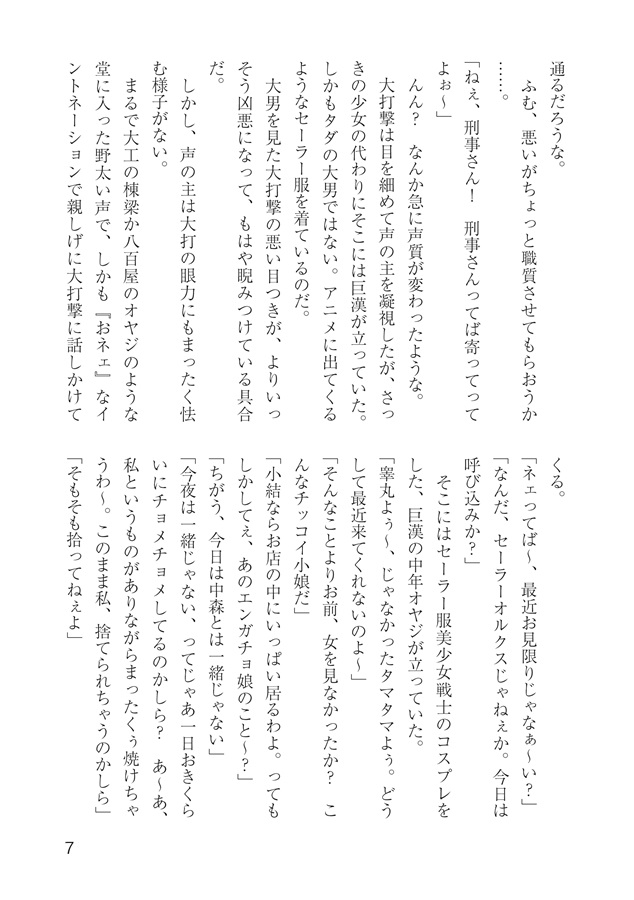 通るだろうな。
　ふむ、悪いがちょっと職質させてもらおうか
……。
「ねぇ、刑事さん！　刑事さんってば寄ってって
よぉ～」
　んん？　なんか急に声質が変わったような。
　大打撃は目を細めて声の主を凝視したが、さっ
きの少女の代わりにそこには巨漢が立っていた。
しかもタダの大男ではない。アニメに出てくる
ようなセーラー服を着ているのだ。
　大男を見た大打撃の悪い目つきが、よりいっ
そう凶悪になって、もはや睨みつけている具合
だ。
　しかし、声の主は大打の眼力にもまったく怯
む様子がない。
　まるで大工の棟梁か八百屋のオヤジのような
堂に入った野太い声で、しかも『おネェ』なイ
ントネーションで親しげに大打撃に話しかけて
くる。
「ネェってば～、最近お見限りじゃなぁ～い？」
「なんだ、セーラーオルクスじゃねぇか。今日は
呼び込みか？」
　そこにはセーラー服美少女戦士のコスプレを
した、巨漢の中年オヤジが立っていた。
「睾丸よぅ～、じゃなかったタマタマよぅ。どう
して最近来てくれないのよ～」
「そんなことよりお前、女を見なかったか？　こ
んなチッコイ小娘だ」
「小結ならお店の中にいっぱい居るわよ。っても
しかしてぇ、あのエンガチョ娘のこと～？」
「ちがう、今日は中森とは一緒じゃない」
「今夜は一緒じゃない、ってじゃあ一日おきくら
いにチョメチョメしてるのかしら？　あ～あ、
私というものがありながらまったくぅ焼けちゃ
うわ～。このまま私、捨てられちゃうのかしら」
「そもそも拾ってねぇよ」
7